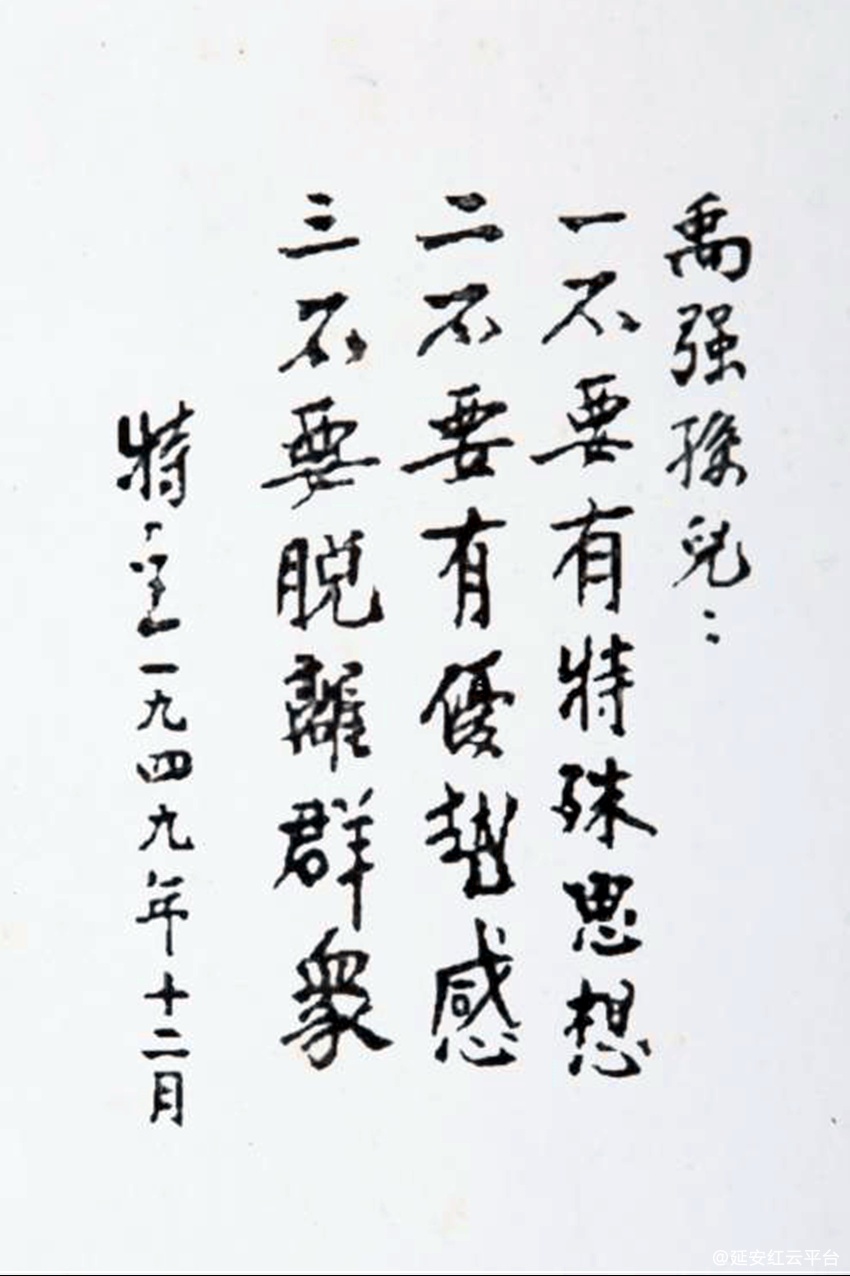 禹强孫兒：
一不要有特殊思想
二不要有優勢感
三不要脱離群衆
特立一九四九年十二月
@延安红云平台